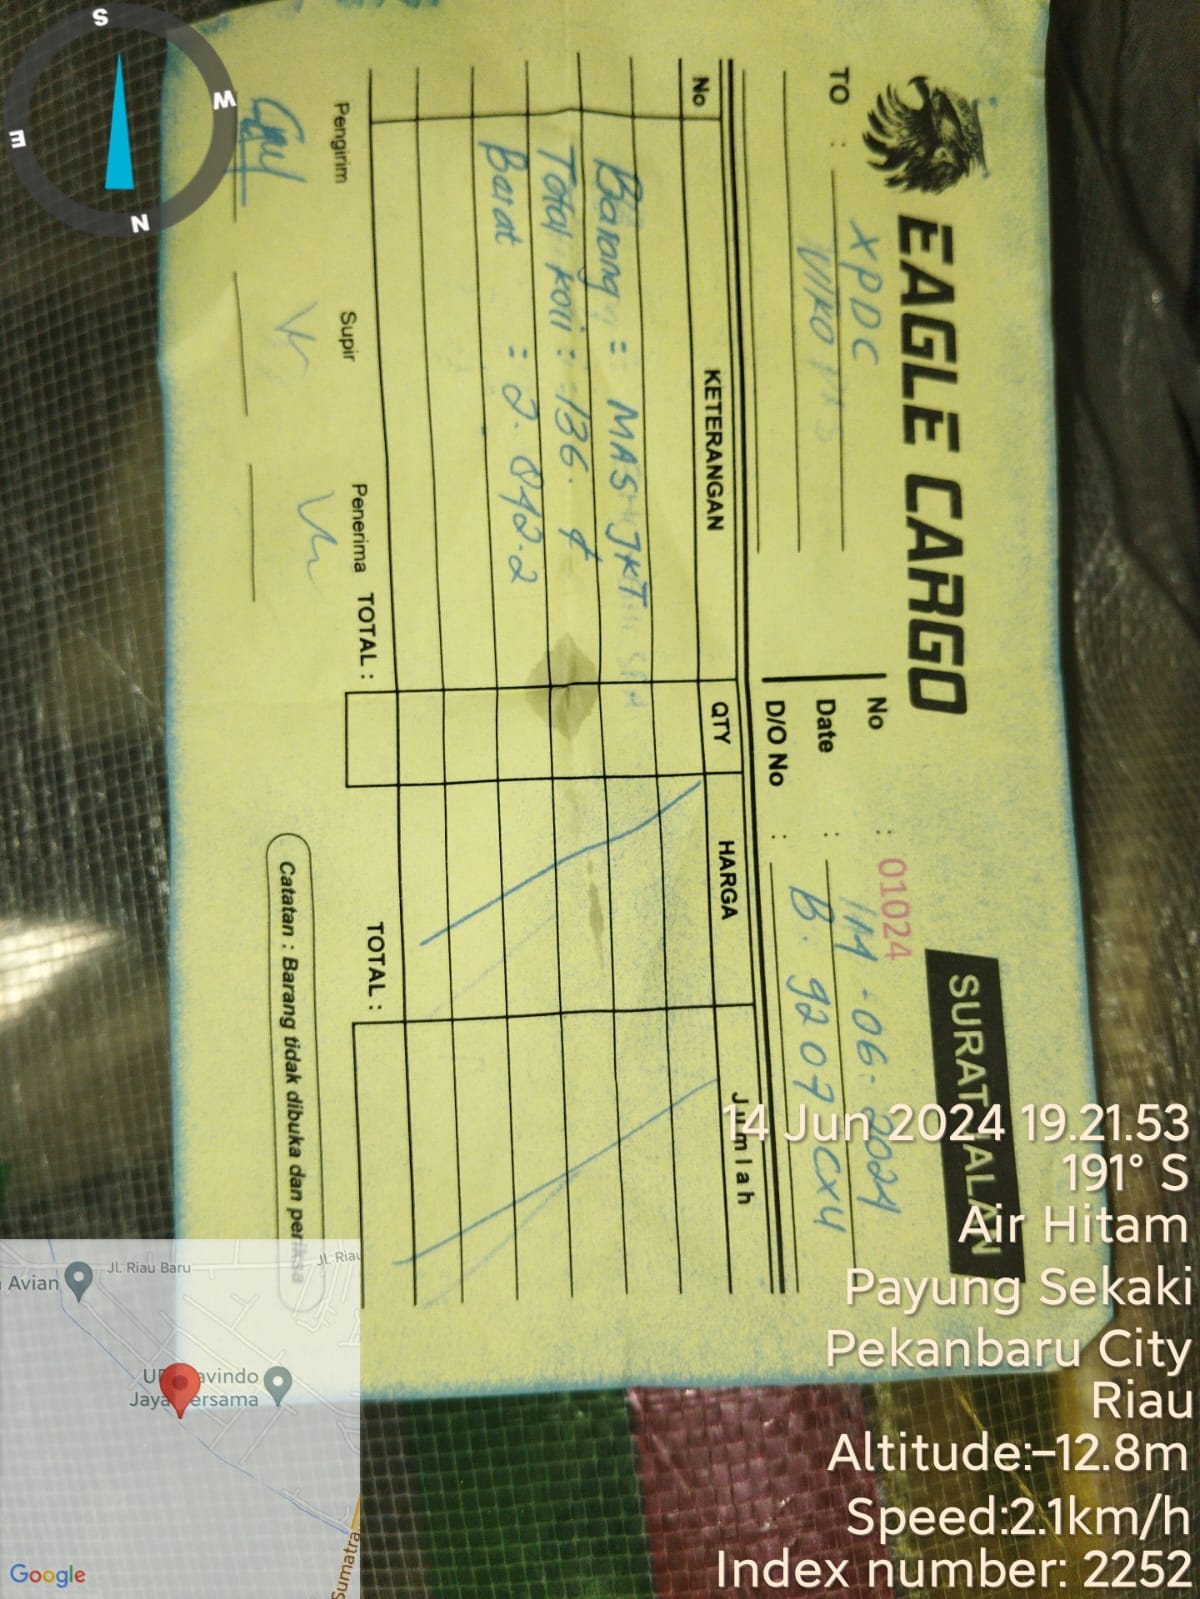 EAGLE CARGO
SURAT JALAN
TO :
XPDC
VIKO
No : 01024
Date : 14-06-2024
D/O No : B. 9207 CXU
No
KETERANGAN
QTY
HARGA
Jumlah
Barang = MAS JKT
Total koli : 136. &
Barat : 2. 042.2
TOTAL :
TOTAL :
Pengirim
Supir
Penerima
Catatan : Barang tidak dibuka dan periksa
S
W
E
N
14 Jun 2024 19.21.53
191° S
Air Hitam
Payung Sekaki
Pekanbaru City
Riau
Altitude:-12.8m
Speed:2.1km/h
Index number: 2252
Avian
Jl. Riau Baru
Jl. Riau
avindo
Jaya Bersama
Sumatra
Google